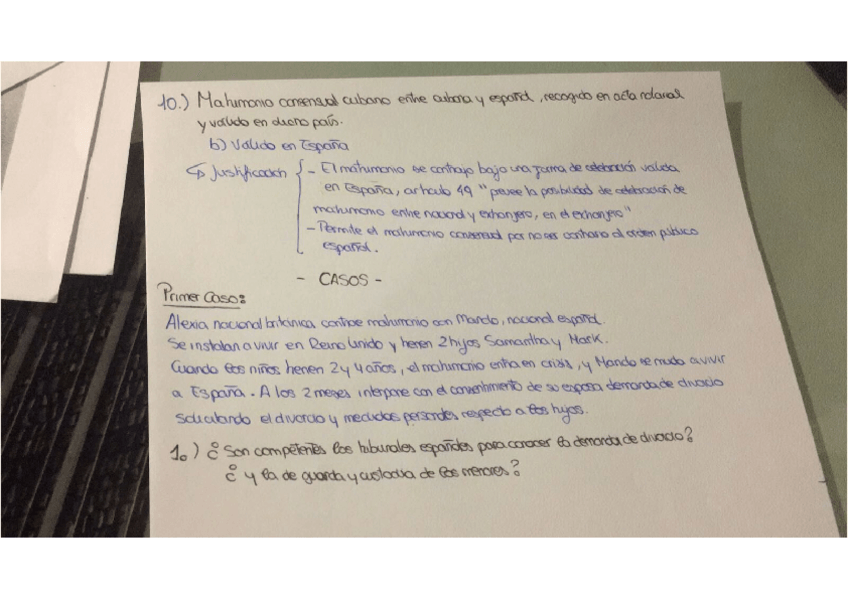 10.) Matrimonio consensual cubano entre cubana y español, recogido en acta notarial
y valido en dicho país.
b) Válido en España
↳ Justificación { - El matrimonio se contrajo bajo una forma de celebración valida
en España, articulo 49 "preveé la posibilidad de celebración de
matrimonio entre nacional y extranjero, en el extranjero"
- Permite el matrimonio consensual por no ser contrario al orden público
español.
- CASOS -
Primer Caso:
Alexia nacional británica contrae matrimonio con Mando, nacional español.
Se instalan a vivir en Reino Unido y tienen 2 hijos Samantha y Mark.
Cuando los niños tienen 2 y 4 años, el matrimonio entra en crisis, y Mando se muda a vivir
a España. A los 2 meses interpone con el consentimiento de su esposa demanda de divorcio
solicitando el divorcio y medidas personales respecto a los hijos.
1.) ¿Son competentes los tribunales españoles para conocer la demanda de divorcio?
¿y la de guarda y custodia de los menores?